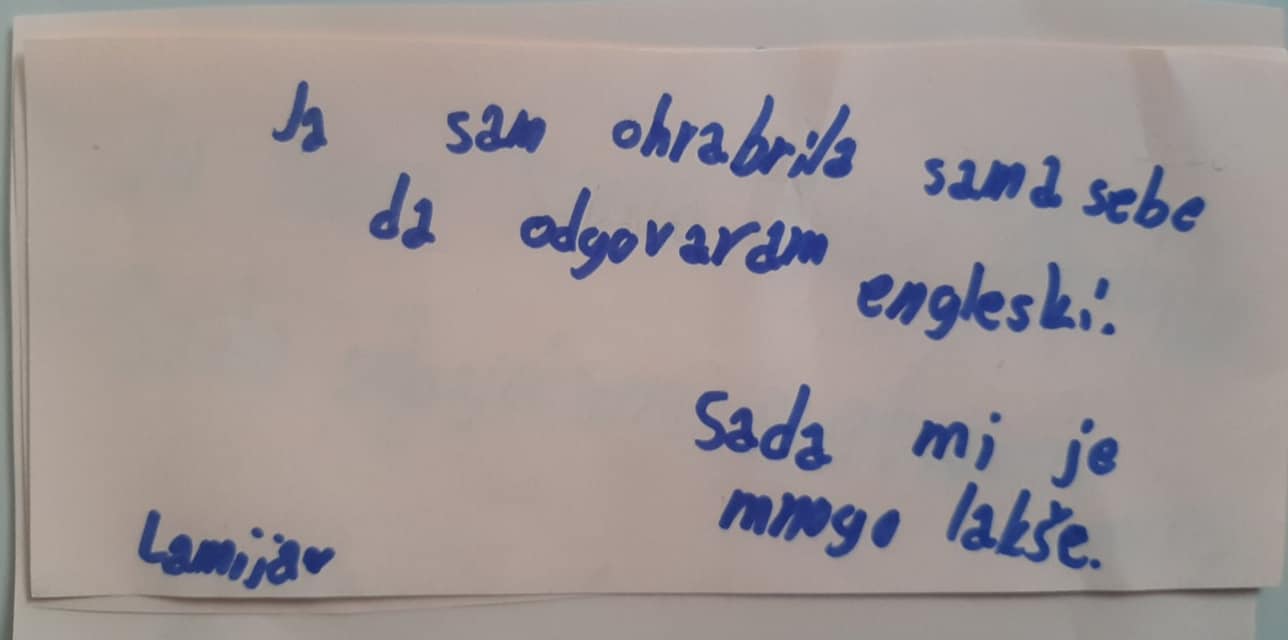 Ja sam ohrabrila sama sebe
da odgovaram engleski!
Sada mi je
mnogo lakše.
Lamija♥